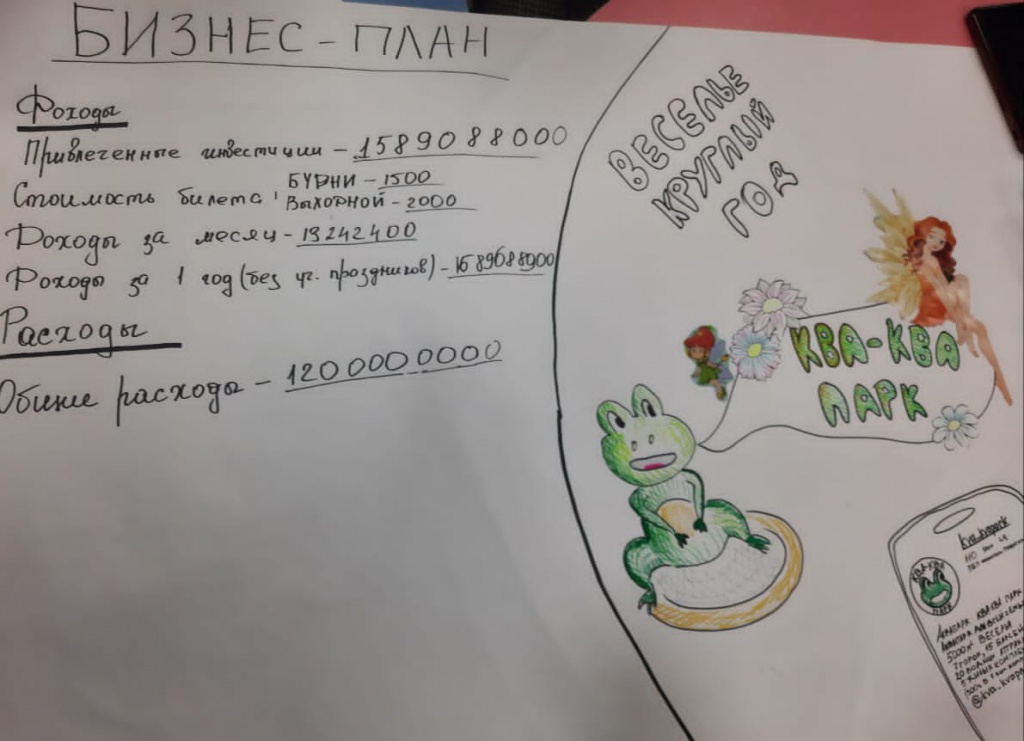 БИЗНЕС - ПЛАН
Доходы
Привлеченные инвестиции - 1589088000
Стоимость билета: БУДНИ - 1500
ВЫХОДНОЙ - 2000
Доходы за месяц - 19242400
Доходы за 1 год (без уч. праздников) -
Расходы
Общие расходы - 1200000000
ВЕСЕЛЬЕ
КРУГЛЫЙ
ГОД
КВА-КВА
ПАРК
kva_kvapark
КВА-КВА
ПАРК
АКВАПАРК КВА КВА ПАРК
5000м² ВЕСЕЛЬЯ
7 ГОРОК, 15
20
@kva_kvapa